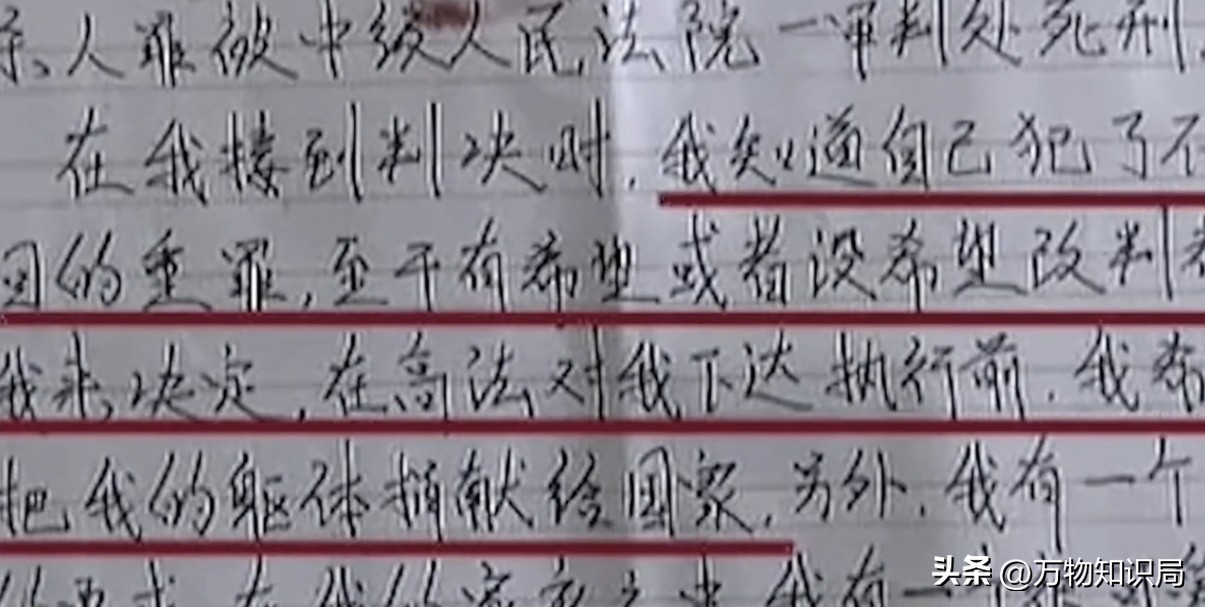 杀人罪被中级人民法院一审判处死刑。
在我接到判决时，我知道自己犯了不
的重罪，至于有希望或者没希望改判
我来决定，在高法对我下达执行前，我希
把我的躯体捐献给国家，另外，我有一个
在我的家产之中我有一
头条 @万物知识局